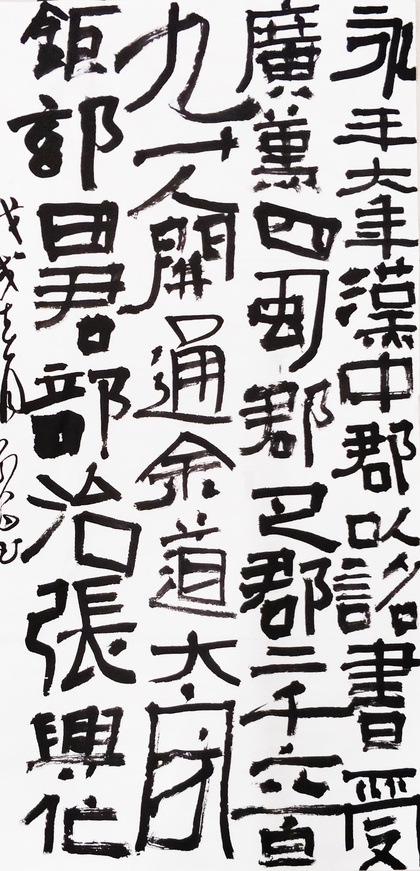 永平大年漢中郡以詔書受
廣萬四蜀郡巴郡二千六百
九十人開通余道大
鉅部君部治張興作
戊戌月